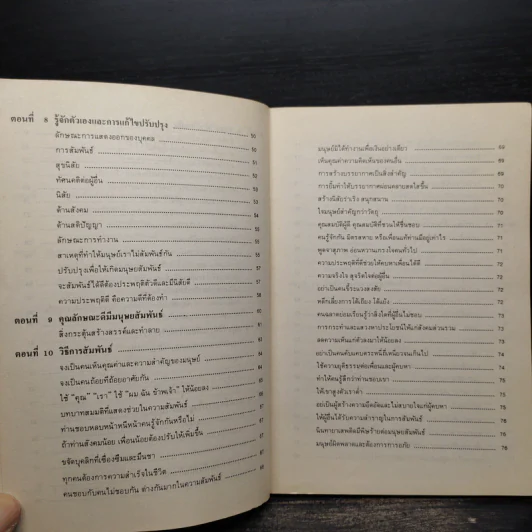 ตอนที่ 8 รู้จักตัวเองและการแก้ไขปรับปรุง
ลักษณะการแสดงออกของบุคคล
การสัมพันธ์
สุขนิสัย
ทัศนคติต่อผู้อื่น
นิสัย
ด้านสังคม
ด้านสติปัญญา
ลักษณะการทำงาน
สาเหตุที่ทำให้มนุษย์เราไม่สัมพันธ์กัน
ปรับปรุงเพื่อให้เกิดมนุษยสัมพันธ์
จะสัมพันธ์ได้ดีต้องประพฤติตัวดีและมีนิสัยดี
ความประพฤติดี คือความดีที่ต้องทำ
ตอนที่ 9 คุณลักษณะดีมีมนุษยสัมพันธ์
สิ่งกระตุ้นสร้างสรรค์และทำลาย
ตอนที่ 10 วิธีการสัมพันธ์
จงเป็นคนเห็นคุณค่าและความสำคัญของมนุษย์
จงเป็นคนถ้อยทีถ้อยอาศัยกัน
ใช้ "คุณ" "เรา" ใช้ "ผม ฉัน ข้าพเจ้า" ให้น้อยลง
บทบาทสมมติที่แสดงช่วยในความสัมพันธ์
ท่านชอบหลบหน้าหนีหน้าคนรู้จักกันหรือไม่
ถ้าท่านสังคมน้อย เพื่อนน้อยต้องปรับให้เพิ่มขึ้น
ขจัดบุคลิกที่เซื่องซึมและมึนชา
ทุกคนต้องการความสำเร็จในชีวิต
คนชอบกับคนไม่ชอบกัน ต่างกันมากในความสัมพันธ์
มนุษย์มิได้ทำงานเพื่อเงินอย่างเดียว 69
เห็นคุณค่าความคิดเห็นของคนอื่น 69
การสร้างบรรยากาศเป็นสิ่งสำคัญ
การยิ้มทำให้บรรยากาศผ่อนคลายสดใสขึ้น
สร้างนิสัยร่าเริง สนุกสนาน
ใจมนุษย์สำคัญกว่าวัตถุ
คุณสมบัติผู้ดี คุณสมบัติที่ชวนให้ชื่นชอบ
คนรู้จักกัน มิตรสหาย หรือเพื่อนแท้ท่านมีอยู่เท่าไร
พูดจาสุภาพ อ่อนหวานเกรงใจคนทั่วไป
ความประพฤติที่ดีช่วยให้คบหาเพื่อนได้ดี
ความจริงใจ สุจริตใจต่อผู้อื่น
อย่าเป็นคนขี้ระแวงสงสัย
หลีกเลี่ยงการโต้เถียง โต้แย้ง
คนฉลาดย่อมเรียนรู้ว่าสิ่งใดที่ผู้อื่นไม่ชอบ
การกระทำและแสวงหาประโยชน์ให้แก่สังคมส่วนรวม
ลดความเห็นแก่ตัวลงมาให้น้อยลง
อย่าเป็นคนคับแคบตระหนี่ถี่เหนียวจนเกินไป
ใช้ความยุติธรรมต่อเพื่อนและผู้คบหา
ทำให้คนรู้สึกว่าท่านชอบเขา
ให้เขาสูงตัวเราต่ำ
อย่าเป็นผู้สร้างความอึดอัดและไม่สบายใจแก่ผู้คบหา
ให้ผู้อื่นได้รับความสำราญในการสัมพันธ์
นินทายาเสพติดมีพิษร้ายต่อมนุษยสัมพันธ์ 76
มนุษย์ผิดพลาดและต้องการการอภัย 76